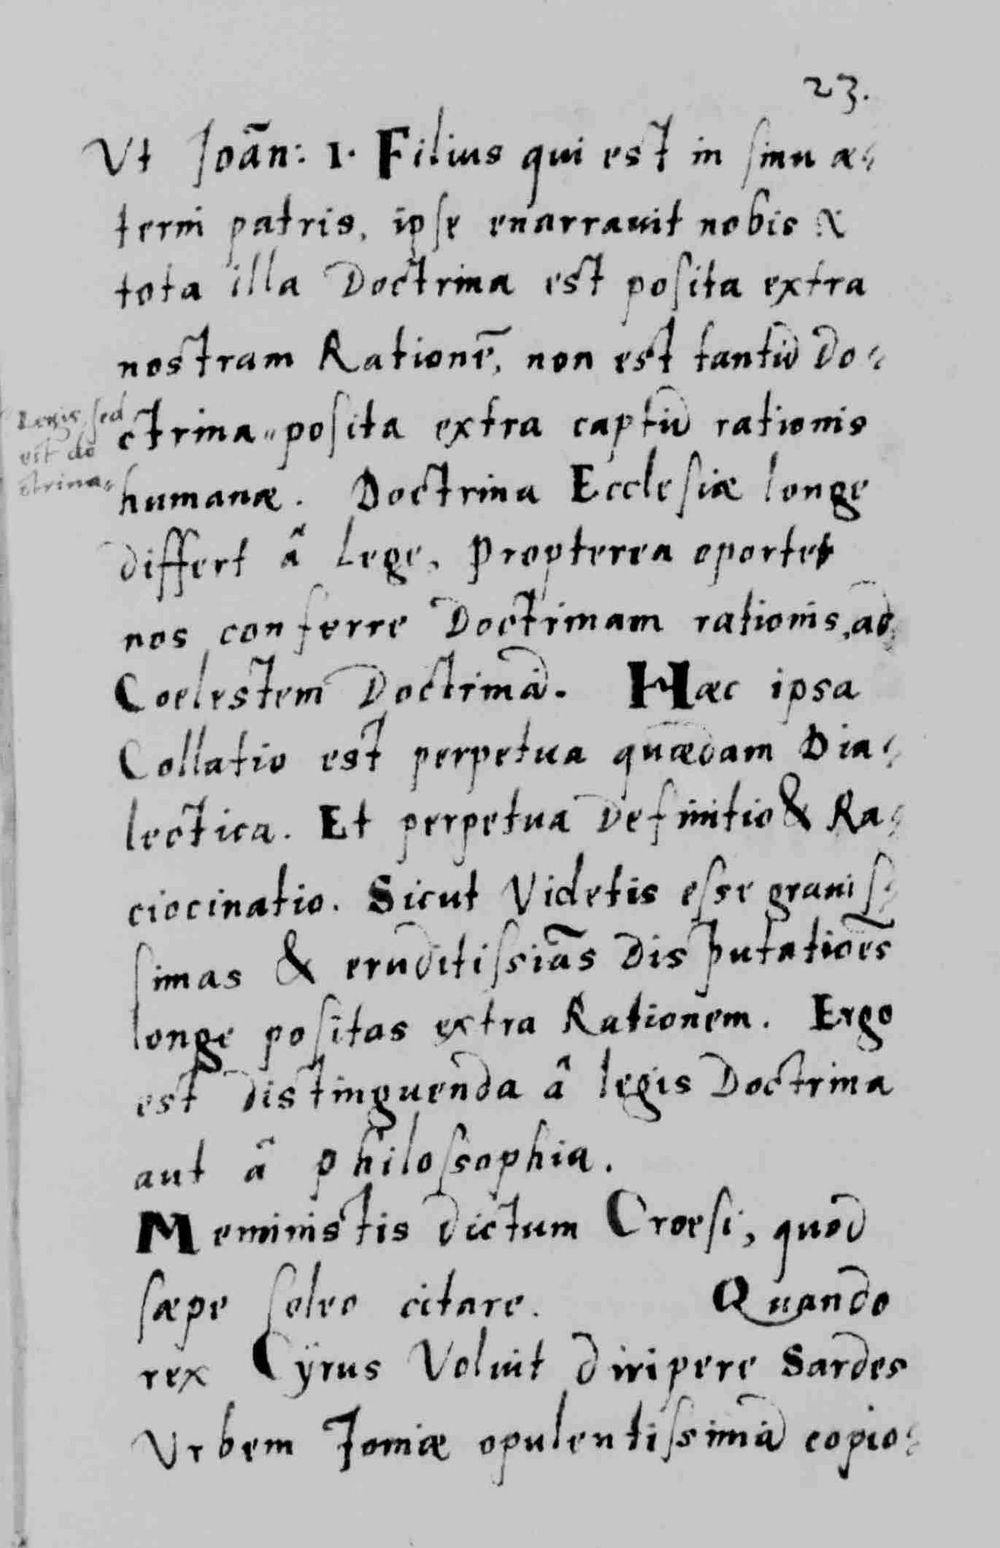 23.
Vt Joãn: 1. Filius qui est in sinu æ-
terni patris, ipse enarrauit nobis &
tota illa Doctrina est posita extra
nostram Rationẽ, non est tantũ do-
Legis, sed
est do
ctrina
ctrina posita extra captũ rationis
humanæ. Doctrina Ecclesiæ longe
differt â Lege, Propterea oportet
nos conferre Doctrinam rationis, ad
Coelestem Doctrinã. Hæc ipsa
Collatio est perpetua quædam Dia-
lectica. Et perpetua Definitio & Ra-
ciocinatio. Sicut Videtis esse grauis-
simas & eruditissiãs Disputatioẽs
longe positas extra Rationem. Ergo
est distinguenda â legis Doctrina
aut â Philossophia.
Meministis dictum Croesi, quod
sæpe soleo citare. Quando
rex Cÿrus Voluit diripere Sardes
Vrbem Joniæ opulentissimã copio-